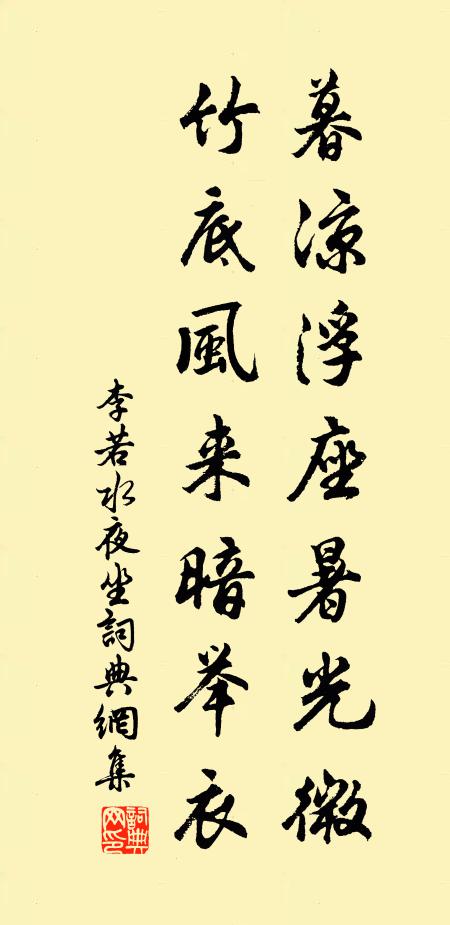 暮涼浮座暑光微
竹底風来暗举衣
李若水夜坐詞典網集
詞典網印